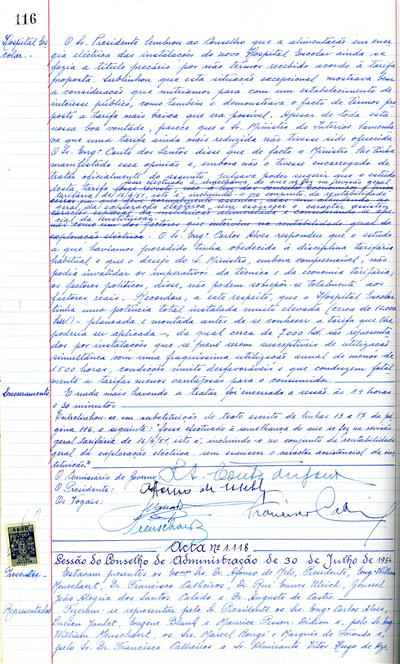 116
Hospital Escolar.-
O Sr. Presidente lembrou ao Conselho que a alimentação em energia eléctrica das instalações do novo Hospital Escolar ainda se
fazia a título precário por não termos recebido acordo à tarifa
proposta. Sublinhou que esta situação excepcional mostrava bem
a consideração que nutríamos para com um estabelecimento de
interesse público, como também o demonstrava o facto de termos proposto a tarifa mais baixa que era possível. Apesar de toda esta
nossa boa vontade, parece que o Sr. Ministro do Interior lamentava que uma tarifa ainda mais reduzida não tivesse sido oferecida.
O Sr. Engº Couto dos Santos disse que de facto o Ministro lhe tinha
manifestado essa opinião e, embora não o tivesse encarregado de
tratar oficialmente do assunto, julgava poder sugerir que o estudo
desta tarifa
O Sr. Eng. Carlos Alves respondeu que o estudo
a que havíamos procedido tinha obedecido à disciplina tarifária
habitual e que o desejo do Sr. Ministro, embora compreensível, não
podia invalidar os imperativos da técnica e da economia tarifária;
os factores políticos, disse, não podem sobrepôr-se totalmente aos
factores reais. Recordou, a este respeito, que o Hospital Escolar
tinha uma potência total instalada muito elevada (cerca de 10.000
kW) - planeada e montada antes de se conhecer a tarifa que lhe
poderia ser aplicada -, da qual cerca de 7.000 kW representados por instalações que se prevê serem susceptíveis de utilização
simultânea com uma fraquíssima utilização anual de menos de
1500 horas, condições muito desfavoráveis e que conduzem fatalmente a tarifas menos vantajosas para o consumidor.
Encerramento
E nada mais havendo a tratar foi encerrada a sessão às 19 horas
e 30 minutos.
Entrelinhou-se em substituição do texto escrito de linhas 13 a 17 da página 116, o seguinte: "fosse efectuado à semelhança do que se fez na revisão
geral tarifária de 16/4/51 isto é, incluindo-o no conjunto da rentabilidade
geral da exploração eléctrica, sem esquecer o carácter assistencial da instituição."
O Comissário do Governo
O Presidente:
Os Vogais:
Acta Nº 1.118
Sessão do Conselho de Administração de 30 de Julho de 1954
Presentes.-
Estavam presentes os Exmos Srs. Dr. Afonso de Melo, Presidente, Eng. William
Muschard, Dr. Francisco Calheiros, Dr. Ruy Ennes Ulrich, General
João Alegria dos Santos Calado e Dr. Augusto de Castro.
Representados
Fizeram-se representar pelo Sr. Presidente os Srs. Eng. Carlos Alves,
Lucien Janlet, Eugène Blank e Maurice Pisson-Didion e, pelo Sr. Eng.
William Muschard, os Srs. Marcel Mongé e Marquis de Foronda e,
pelo Sr. Dr. Francisco Calheiros o Sr. Almirante Vítor Hugo de Aze-